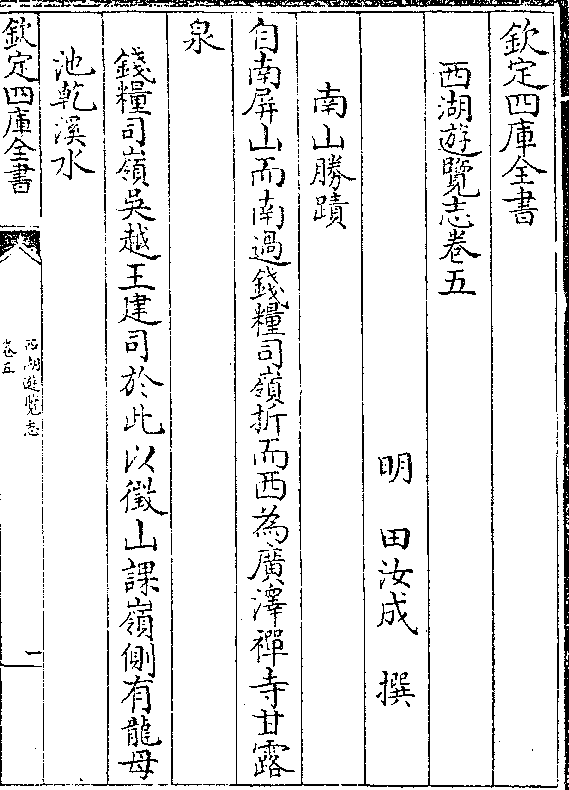 欽定四庫全書
西湖遊覽志卷五
明 田汝成 撰
南山勝蹟
自南屏山而南過錢糧司嶺折而西為廣澤禪寺甘露
泉
錢糧司嶺吳越王建司於此以徵山課嶺側有龍母
池乾溪水
欽定四庫全書
西湖遊覽志
卷五
一